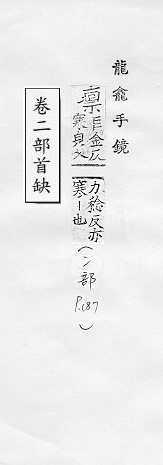 龍龕手鏡
凛巨金反寒皃又力稔反亦寒丨也(冫部 P.187)
卷二部首缺